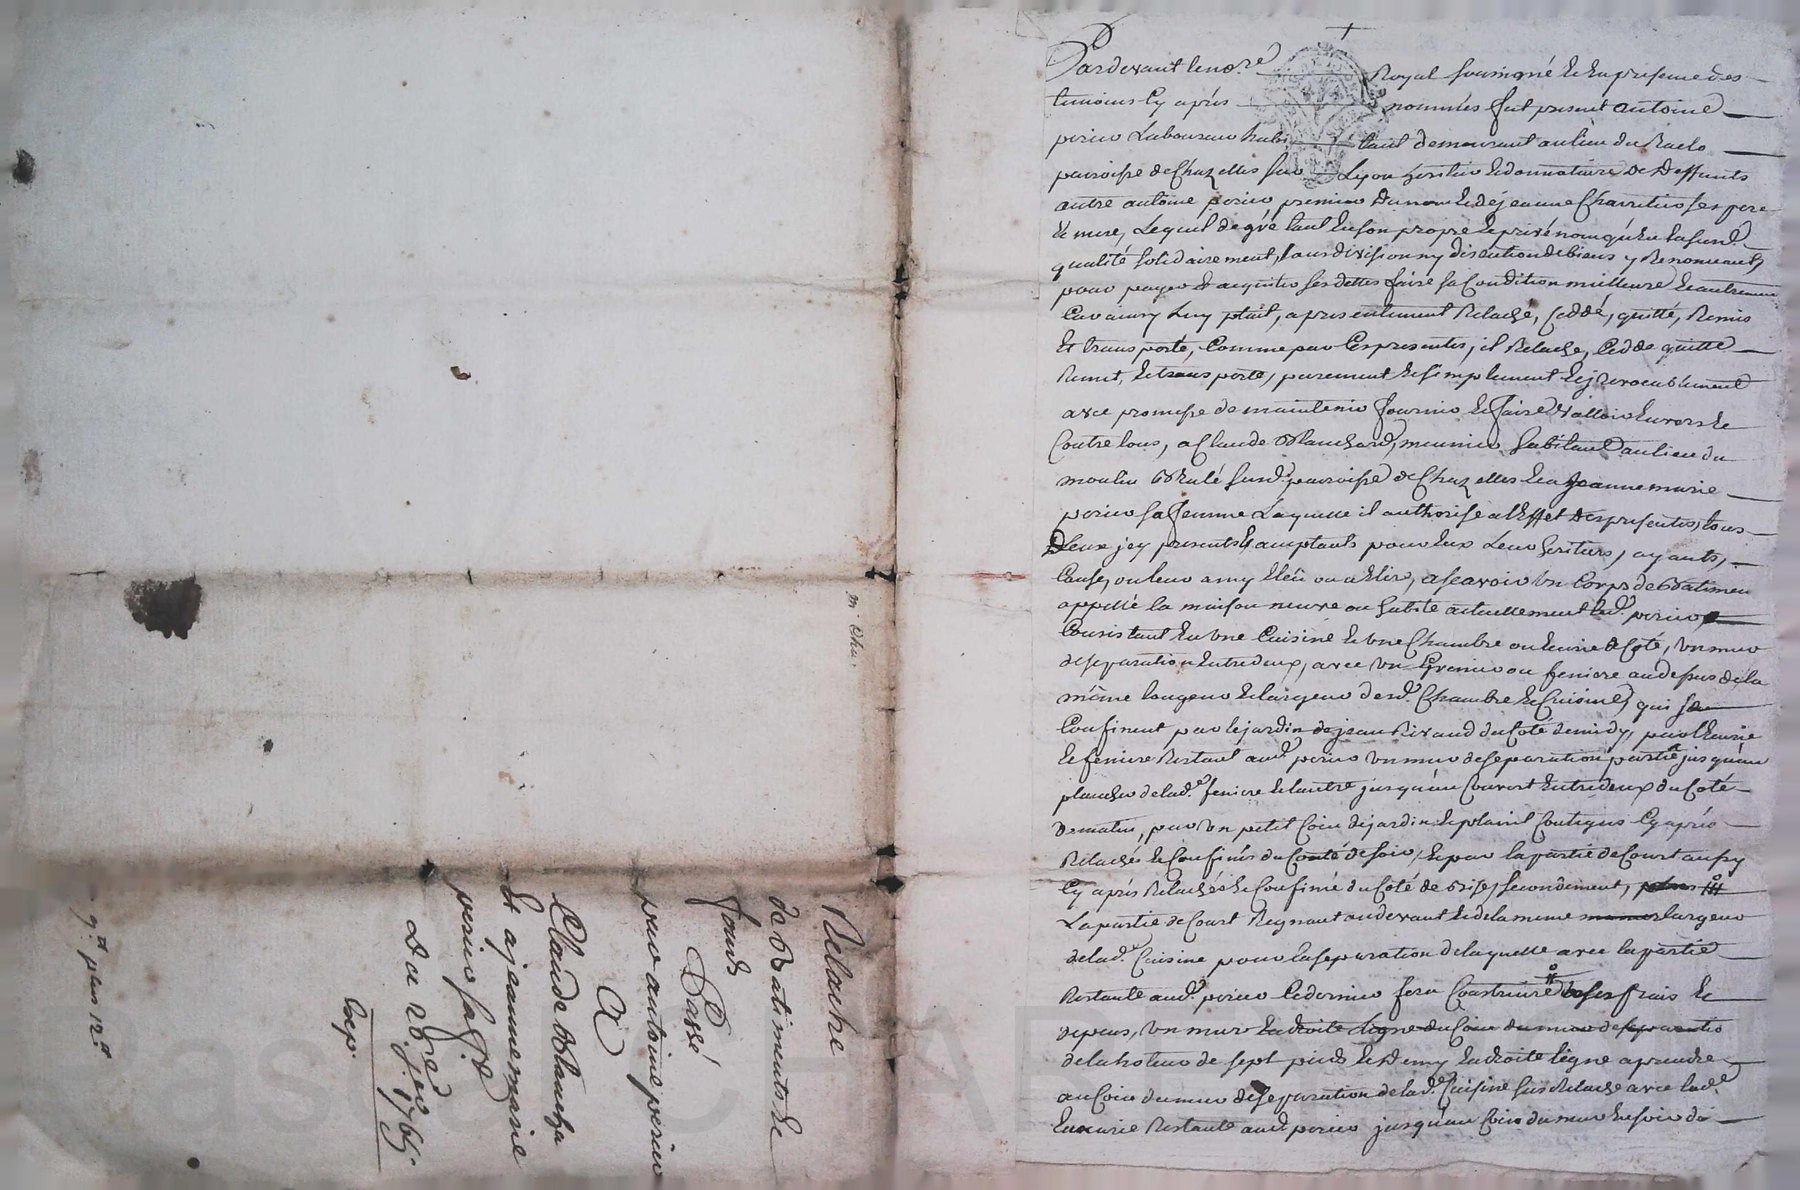 Pardevant le no.re Royal soussigné et en presence des
temoins cy après nommés fut present antoine
perieu Laboureur habitant demeurant au lieu du
paroisse de Chazelles sur Lyon heritier et donnataire de deffunts
autre antoine perieu premier du nom et de jeanne Charretier ses pere
et mere, Lequel de gré tant en son propre et privé nom qu'en la susd.
qualité solidairement, sans division ny discution de biens y Renonceant
pour payer et acquiter ses dettes faire sa Condition meilleure et autrement
Car ainsy Luy plait, a presentement Relaché, Ceddé, quitté, Remis
Et transporté, Comme par Ces presentes, il Relache, Cedde quitte
Remet, et transporte, purement et simplement et jrrevocablement
avec promesse de maintenir fournir et faire Valloir Envers et
Contre tous, a Claude Blanchard, meunier habitant au lieu du
moulin Brulé susd. paroisse de Chazelles et a jeanne marie
perieu sa femme Laquelle il authorise a l'Effet des presentes, tous
Deux jcy presents & acceptants pour Eux Leurs heritiers, ayants,
Cause, ou leur amy Elû ou a Elire, a scavoir Un Corps de Batimen
appellé la maison neuve ou habite actuellement led. perieu
Consistant En Une Cuisine et Une Chambre ou Ecurie de Coté, Un mur
de separation Entredeux, avec Un Grenier ou feniere au dessus de la
même longeur et largeur desd. Chambre et Cuisine, qui se
Confinent par le jardin de jean Rivaud du Coté de midy, par l'Ecurie
et feniere Restant aud. perieu Un mur de separation partie jusqu'au
plancher de lad.e feniere et l'autre jusqu'au Couvert Entredeux du Coté
de matin, par Un petit Coin de jardin et Contigus Cy après
Relachés et Confinés du Conté de soir, et par la partie de Court aussy
Cy après Relachée et Confinée du Coté de bise, secondement,
La partie de Court Regnant au devant et de la meme largeur
de lad.e Cuisine pour la separation de laquelle avec la partie
Restante aud. perieu Ce dernier fera Construire a ses frais et
depens, Un mur En droite Ligne du Coin du mur de separation
de la hoteur de sept pieds et Demy En droite ligne a prendre
au Coin du mur de separation de lad.e Cuisine sus Relaché avec lad.e
Ecurie Restante aud. perieu jusqu'au Coin du mur En soir de
Relache
de Batiments et
fonds
Passé
par antoine perieu
A
Claude Blancha
Et a jeanne marie
perieu sa fe
Du 28
1765